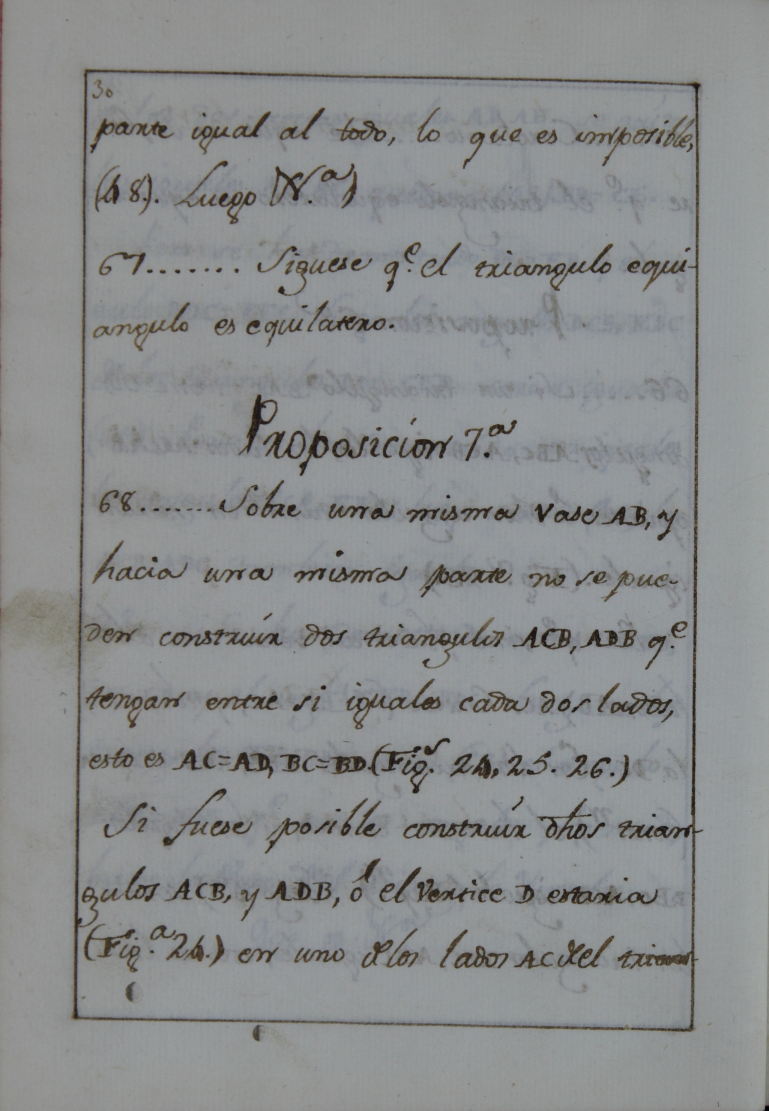 30
parte igual al todo, lo que es imposible,
(48). Luego (N.ª)
67....... Siguese q.e el triangulo equi-
angulo es equilatero.
Proposicion 7.ª
68....... Sobre una misma vase AB, y
hacia una misma parte no se pue-
den construír dos triangulos ACB, ADB q.e
tengan entre si iguales cada dos lados,
esto es AC=AD, BC=BD. (Fig.s 24, 25. 26.)
Si fuese posible construír dhos trian-
gulos ACB, y ADB, ó el Vertice D estaria
(Fig.ª 24.) en uno de los lados AC del trian-